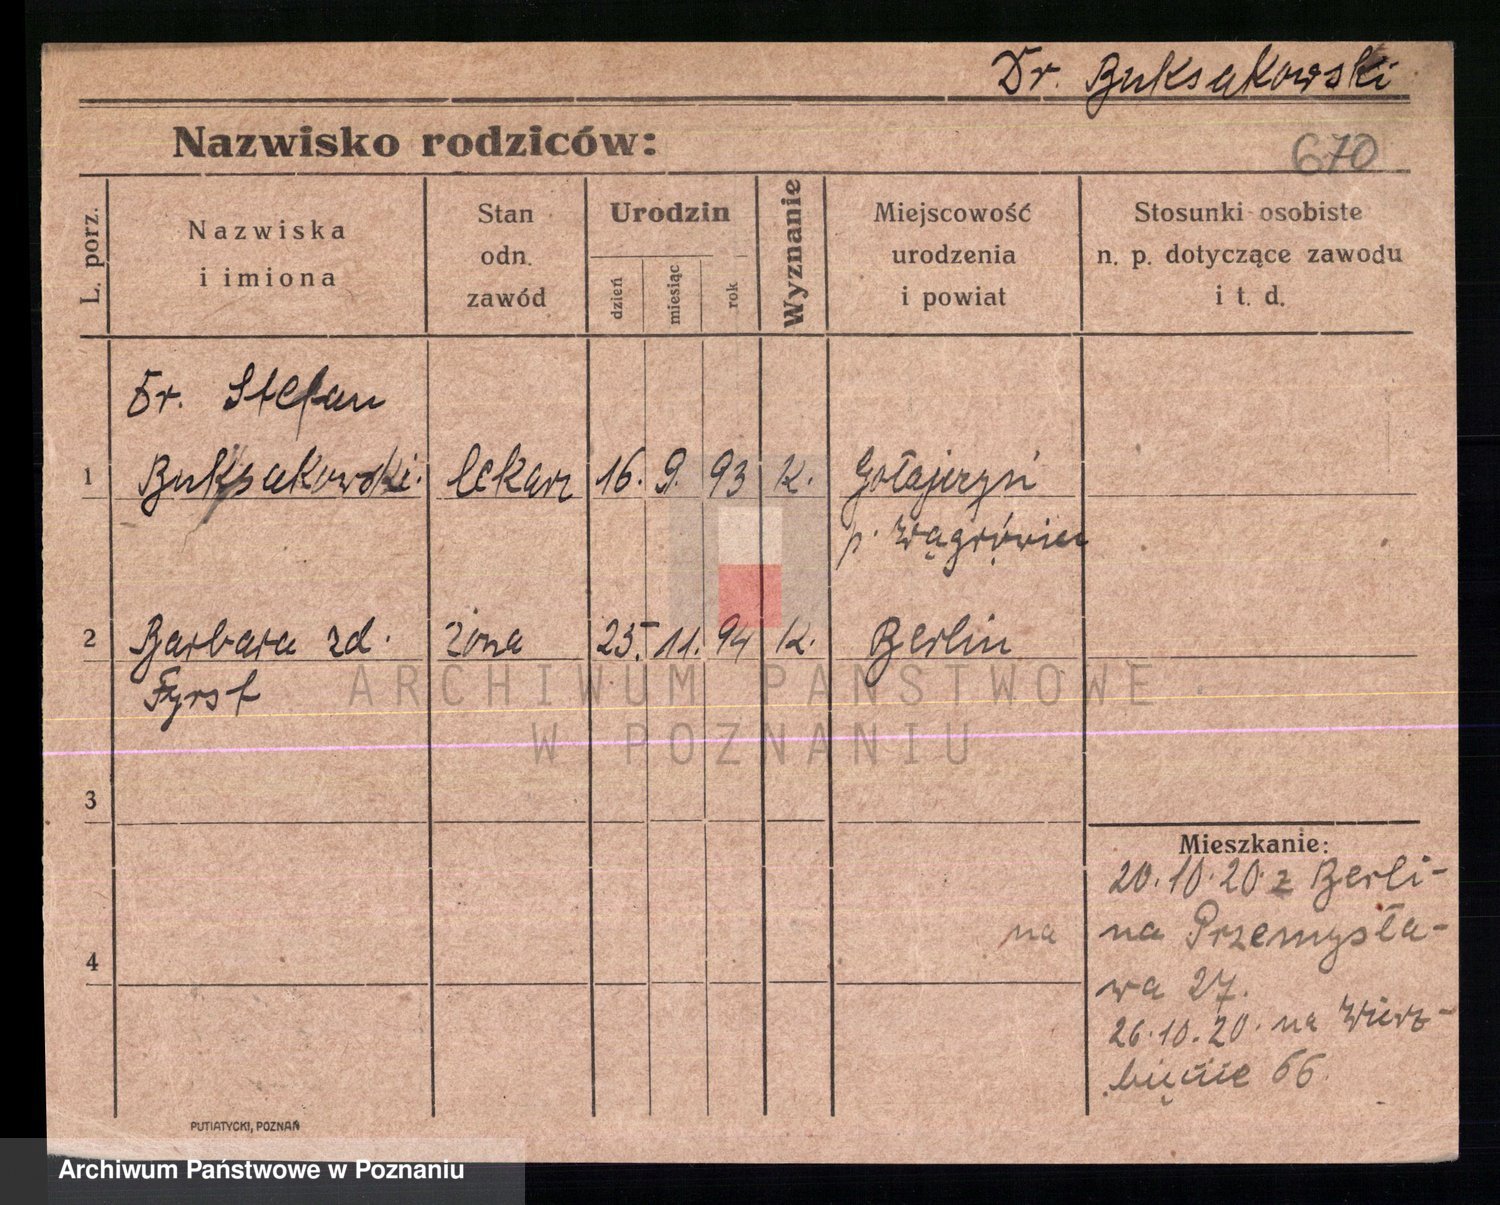 Dr. Buksakowski
Nazwisko rodziców:
670
L. porz.
Nazwiska
i imiona
Stan
odn.
zawód
Urodzin
dzień
miesiąc
rok
Wyznanie
Miejscowość
urodzenia
i powiat
Stosunki osobiste
n. p. dotyczące zawodu
i t. d.
Dr. Stefan
1 Buksakowski. lekarz 16. 9. 93 K. Gołajczyń
p. Wągrówiec
2 Barbara zd. żona 25. 11. 94 K. Berlin
Fyrst
ARCHIWUM PAŃSTWOWE
W POZNANIU
3
Mieszkanie:
20.10.20 z Berli-
na na Przemysła-
4
wa 27.
26.10.20. na Wierz-
bięcie 66
PUTIATYCKI, POZNAŃ
Archiwum Państwowe w Poznaniu